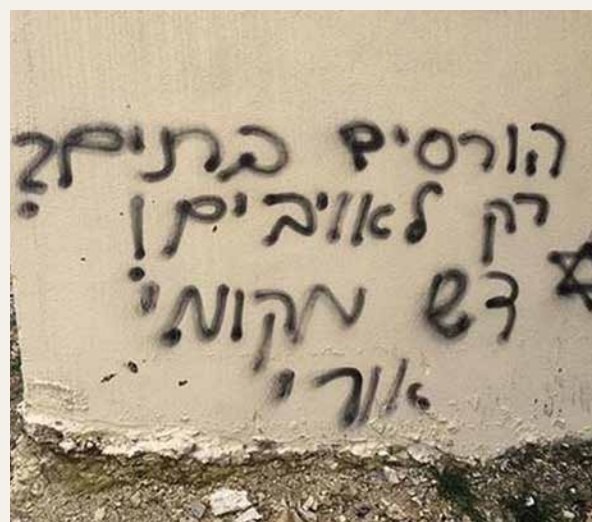 הורסים בתים?
רק לאויבים!
דש מקומי
אורי